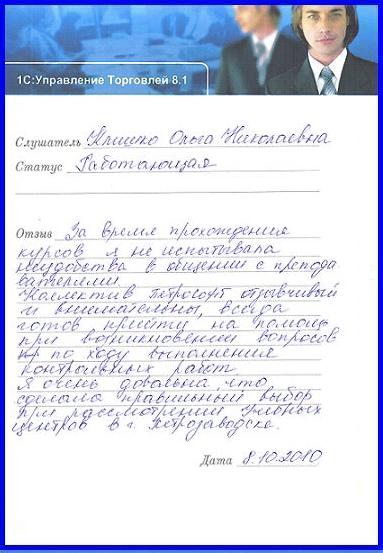 1С:Управление Торговлей 8.1
Слушатель Клишко Ольга Николаевна
Статус Работающая
Отзыв За время прохождения
курсов я не испытывала
неудобства в общении с препода
вателями.
Коллектив Петрософт отзывчивый
и внимательны, всегда
готов прийти на помощь
при возникновении вопросов
по ходу выполнения
контрольных работ.
Я очень довольна, что
сделала правильный выбор
при рассмотрении учебных
центров в г. Петрозаводске.
Дата 8.10.2010